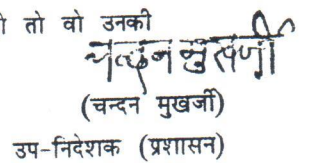 तो वो उनकी
चन्दन मुखर्जी
(चन्दन मुखर्जी)
उप-निदेशक (प्रशासन)